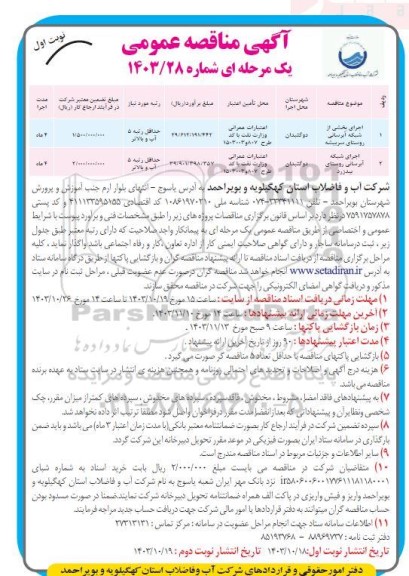 نوبت اول
آگهی مناقصه عمومی
یک مرحله ای شماره ۱۴۰۳/۲۸
ردیف
موضوع مناقصه
شهرستان محل اجرا
محل تأمین اعتبار
مبلغ برآورد(ریال)
رتبه مورد نیاز
مبلغ تضمین معتبر شرکت در فرآیند ارجاع کار (ریال)
مدت اجرا
۱
اجرای بخشی از شبکه آبرسانی روستای سربیشه
اعتبارات عمرانی وزارت نفت با کد طرح
حداقل رتبه ۵ آب و بالاتر
۴ ماه
۲
اجرای شبکه آبرسانی روستای
اعتبارات عمرانی وزارت نفت با کد طرح
حداقل رتبه ۵ آب و بالاتر
۲/۰۰۰/۰۰۰/۰۰۰
۴ ماه
شرکت آب و فاضلاب استان کهگیلویه و بویراحمد به آدرس یاسوج – انتهای بلوار ارم جنب آموزش و پرورش
شهرستان بویراحمد – تلفن
در نظر دارد بر اساس قانون برگزاری مناقصات پروژه های زیر را طبق مشخصات فنی و برآورد پیوست با شرایط
عمومی و اختصاصی از طریق مناقصه عمومی یک مرحله ای به پیمانکار واجد صلاحیت که دارای رتبه معتبر طبق جدول
زیر ، ثبت درسامانه ساجار و دارای گواهی صلاحیت ایمنی کار از اداره تعاون ،کار و رفاه اجتماعی باشد واگذار نماید ، کلیه
مراحل برگزاری مناقصه از دریافت اسناد مناقصه تا ارائه پیشنهاد مناقصه گران و بازگشایی پاکتها از طریق درگاه سامانه ستاد
به آدرس www.setadiran.ir انجام خواهد شد مناقصه گران درصورت عدم عضویت قبلی ، مراحل ثبت نام در سایت
مذکور و دریافت گواهی امضای الکترونیکی را جهت شرکت در مناقصه محقق سازند.
۱) مهلت زمانی دریافت اسناد مناقصه از سایت : ساعت ۱۵ مورخ ۱۴۰۳/۱۰/۱۹ تا ساعت ۱۴ مورخ ۱۴۰۳/۱۰/۲۶
۲) آخرین مهلت زمانی ارائه پیشنهادها : ساعت ۱۴ مورخ ۱۴۰۳/۱۱/۱۰
۳) زمان بازگشایی پاکتها : ساعت ۹ صبح مورخ ۱۴۰۳/۱۱/۱۳
۴) مدت اعتبار پیشنهادها : ۹۰ روز از تاریخ آخرین ارائه پیشنهاد .
۵) بازگشایی پاکتهای مناقصه با حداقل تعداد ۵ مناقصه گر صورت می گیرد .
۶) هزینه درج آگهی و اصلاحات و تجدید های احتمالی روزنامه و همچنین هزینه ی انتشار در سایت ستاد به عهده برنده
مناقصه می باشد.
۷) به پیشنهادهای فاقد امضا، مشروط ، مخدوش ، فاقد سپرده، سپرده های مخدوش ، سپرده های کمتر از میزان مقرر، چک
شخصی ونظایر آن و پیشنهاداتی که بعد از انقضا مدت مقرر در فراخوان واصل شود مطلقا ترتیب اثر داده نخواهد شد.
۸) سپرده تضمین شرکت در فرآیند ارجاع کار بصورت ضمانتنامه معتبر بانکی (با مدت زمان اعتبار ۳ ماه) می باشد و باید ضمن
بارگذاری در سامانه ستاد ایران بصورت فیزیکی در موعد مقرر تحویل دبیرخانه این شرکت گردد.
۹) سایر اطلاعات و جزئیات مربوط در اسناد مناقصه مندرج است.
۱۰) متقاضیان شرکت در مناقصه می بایست مبلغ ۲/۰۰۰/۰۰۰ ریال بابت خرید اسناد به شماره شبای
نزد بانک مهر ایران شعبه یاسوج به نام شرکت آب و فاضلاب استان کهگیلویه و
بویراحمد واریز و فیش واریزی در پاکت الف همراه ضمانتنامه تحویل دبیرخانه شرکت نمایند.ضمنا در صورت مسدود بودن
حساب مناقصه گران میتوانند به دفتر قراردادها یا امور مالی شرکت جهت دریافت حساب جدید مراجعه فرمایند.
۱۱) اطلاعات سامانه ستاد جهت انجام مراحل عضویت در سامانه : مرکز تماس : ۲۷۳۱۳۱۳۱
دفتر ثبت نامه : ۸۸۹۶۹۷۳۷ – ۸۵۱۹۳۷۶۸
تاریخ انتشار نوبت اول:۱۴۰۳/۱۰/۱۸ تاریخ انتشار نوبت دوم : ۱۴۰۳/۱۰/۱۹
دفتر امور حقوقی و قراردادهای شرکت آب وفاضلاب استان کهگیلویه و بویراحمد